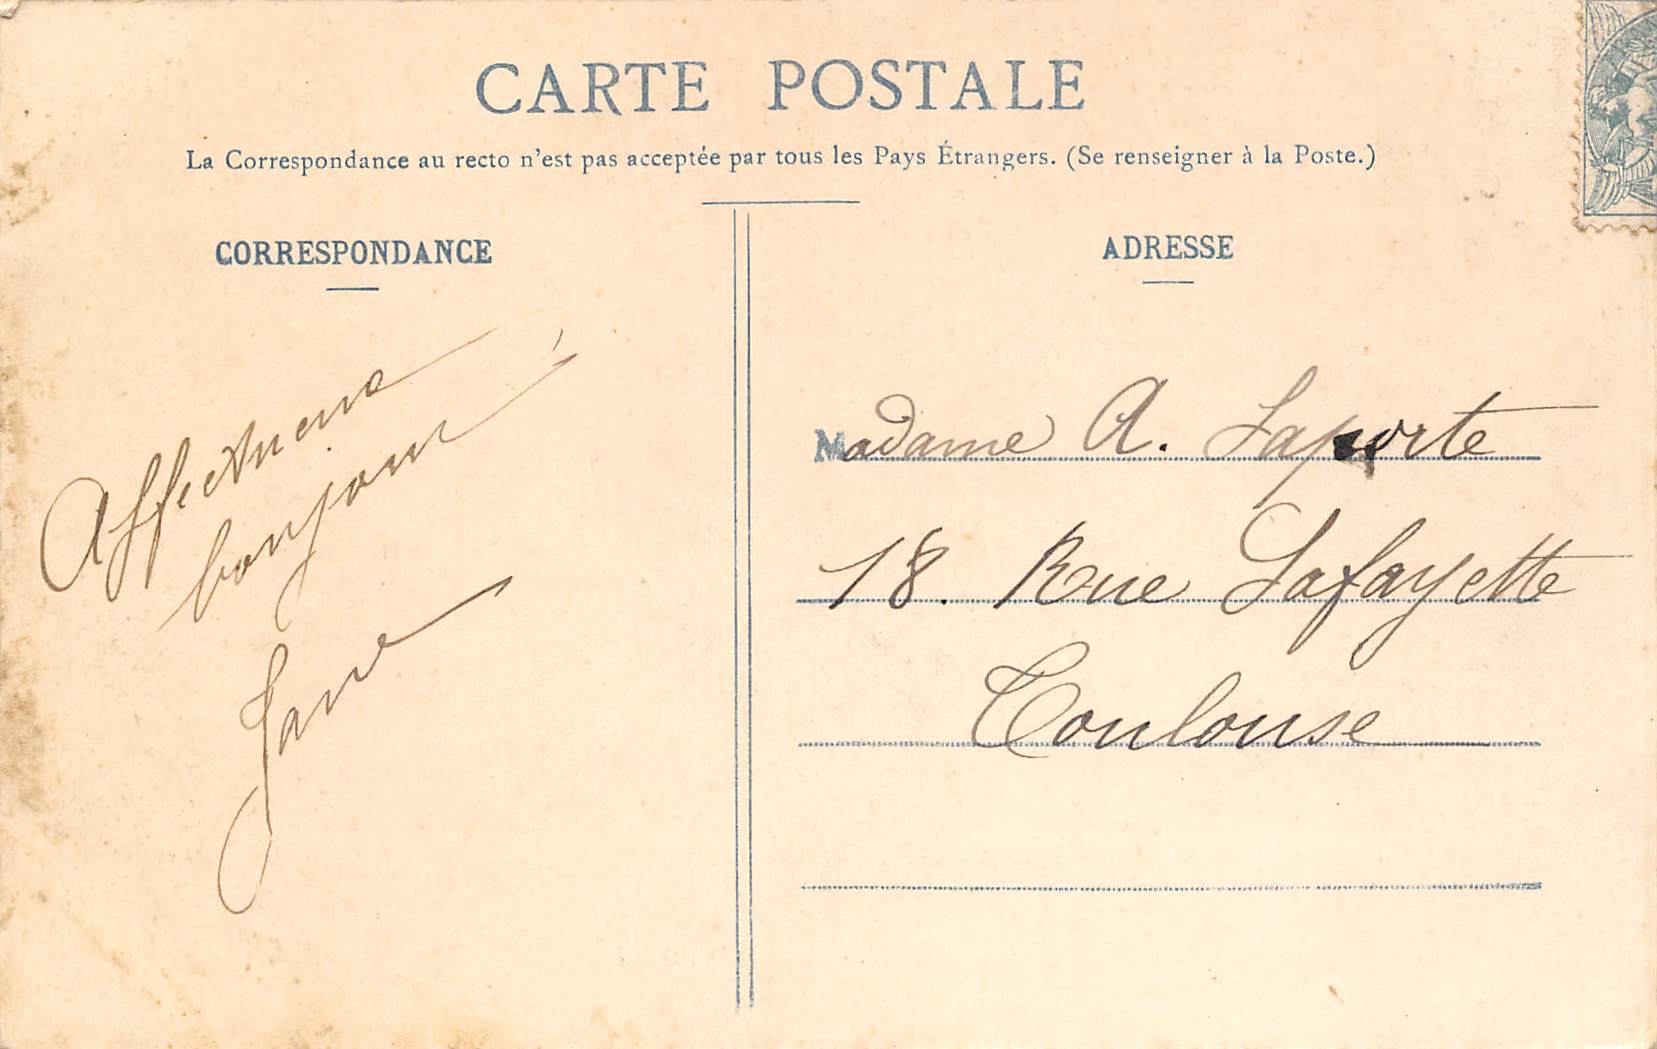 CARTE POSTALE
La Correspondance au recto n'est pas acceptée par tous les Pays Étrangers. (Se renseigner à la Poste.)
CORRESPONDANCE
Affectueux
bonjour
Jane
ADRESSE
Madame A. Laporte
18. Rue Lafayette
Toulouse